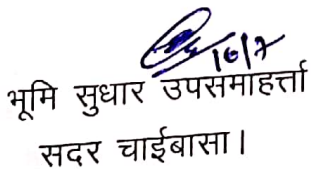 16/7
भूमि सुधार उपसमाहर्त्ता
सदर चाईबासा।